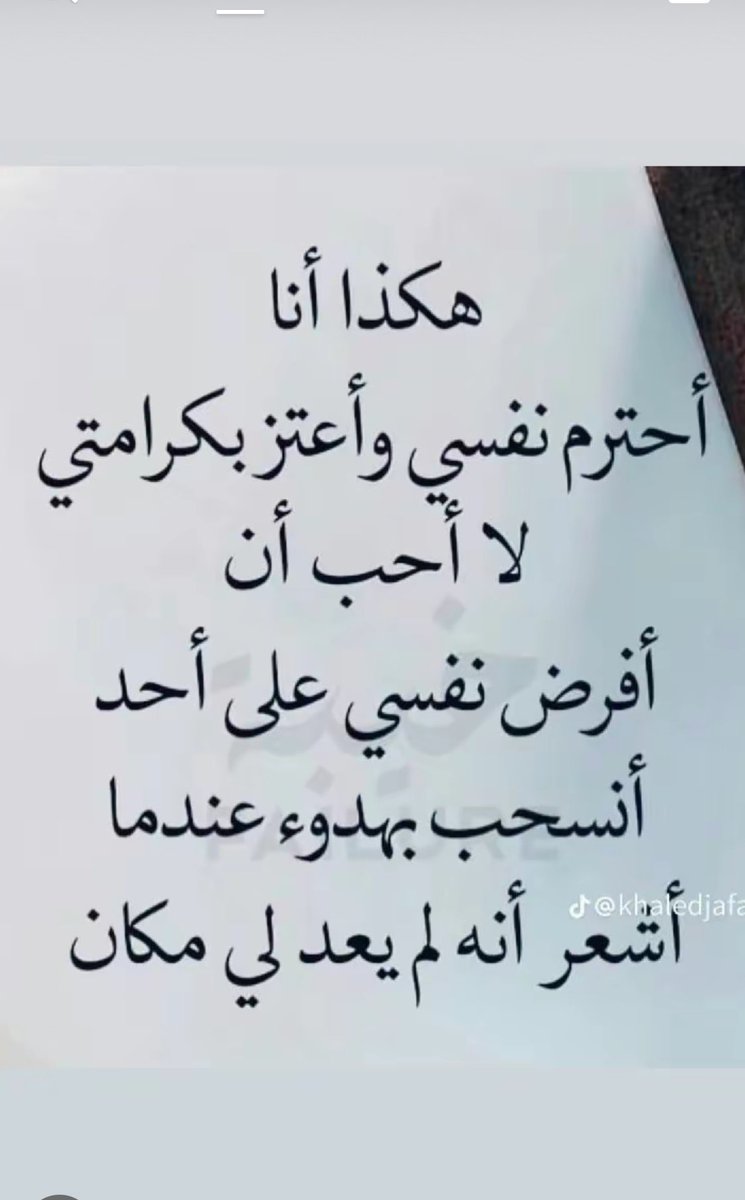 هكذا أنا
أحترم نفسي وأعتز بكرامتي
لا أحب أن
أفرض نفسي على أحد
خيبة
أنسحب بهدوء عندما
FAILURE
@khaledjafa
أشعر أنه لم يعد لي مكان